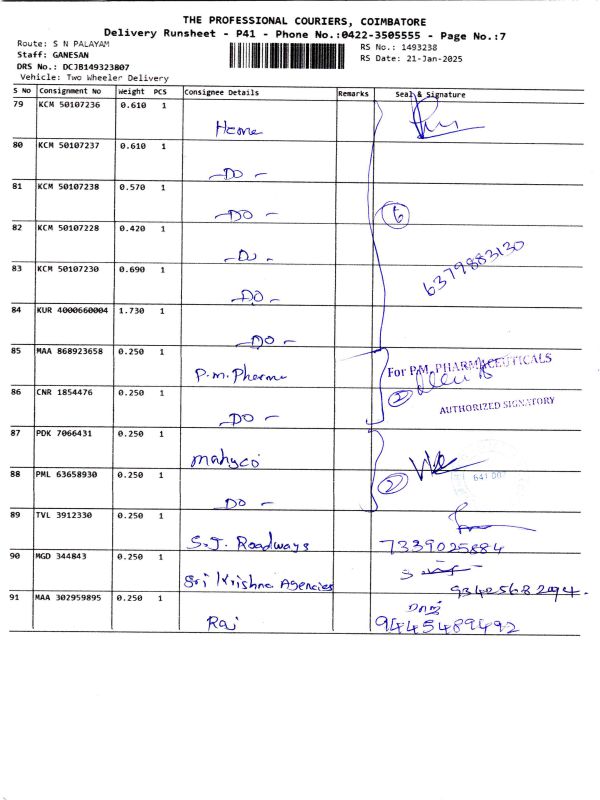 THE PROFESSIONAL COURIERS, COIMBATORE
Delivery Runsheet - P41 - Phone No.:0422-3505555 - Page No.:7
Route: S N PALAYAM
Staff: GANESAN
DRS No.: DCJB149323807
Vehicle: Two Wheeler Delivery
RS No.: 1493238
RS Date: 21-Jan-2025
S No Consignment No Weight PCS Consignee Details Remarks Seal & Signature
79 KCM 50107236 0.610 1 Home
80 KCM 50107237 0.610 1 -DO-
81 KCM 50107238 0.570 1 -DO- 6
82 KCM 50107228 0.420 1 -DO-
83 KCM 50107230 0.690 1 -DO- 6379883130
84 KUR 4000660004 1.730 1 -DO-
85 MAA 868923658 0.250 1 P.M. Pharma For P.M. PHARMACEUTICALS
86 CNR 1854476 0.250 1 -DO- 2 AUTHORIZED SIGNATORY
87 PDK 7066431 0.250 1 Mahyco
88 PML 63658930 0.250 1 DO - 2
89 TVL 3912330 0.250 1 S.J. Roadways 7339025884
90 MGD 344843 0.250 1 Sri Krishna Agencies 93425682094.
91 MAA 302959895 0.250 1 Raj ராஜ்
9445489492